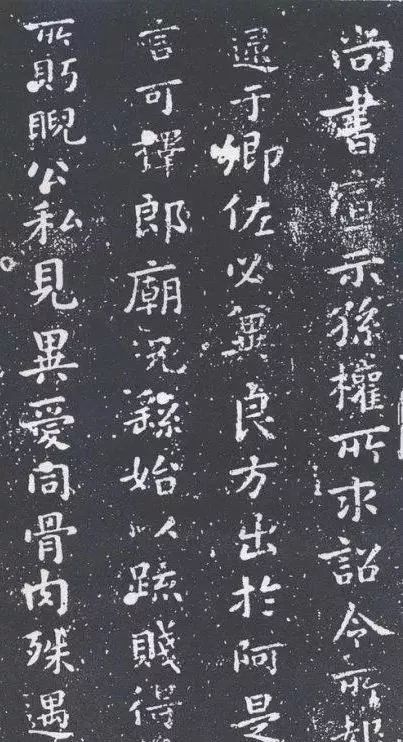 尚書宣示孫權所求詔令所報
逮于卿佐必冀良方出於阿是
言可擇郎廟況繇始以疏賤得
所眄睨公私見異愛同骨肉殊遇